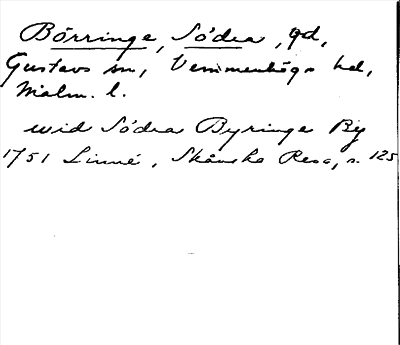 Börringe, Södra, gd,
Gustavs sn, Vemmenhögs hd,
Malm. l.
wid Södra Byringe By
1751 Linné, Skånska Resa, s. 125